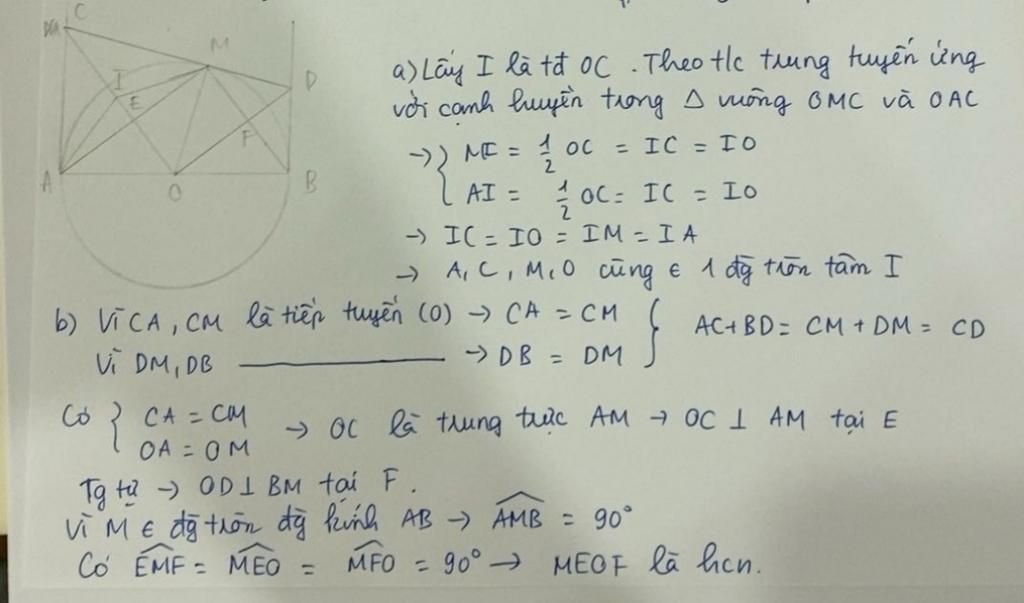 C
M
I
D
E
F
A
O
B
a) Lấy I là tđ OC. Theo t/c trung tuyến ứng
với cạnh huyền trong Δ vuông OMC và OAC
→ { MI = 1/2 OC = IC = IO
AI = 1/2 OC = IC = IO
→ IC = IO = IM = IA
→ A, C, M, O cùng ∈ 1 đg tròn tâm I
b) Vì CA, CM là tiếp tuyến (O) → CA = CM } AC + BD = CM + DM = CD
Vì DM, DB ——— → DB = DM
Có { CA = CM
OA = OM → OC là trung trực AM → OC ⊥ AM tại E
Tg tự → OD ⊥ BM tại F.
Vì M ∈ đg tròn đg kính AB → \widehat{AMB} = 90°
Có \widehat{EMF} = \widehat{MEO} = \widehat{MFO} = 90° → MEOF là hcn.